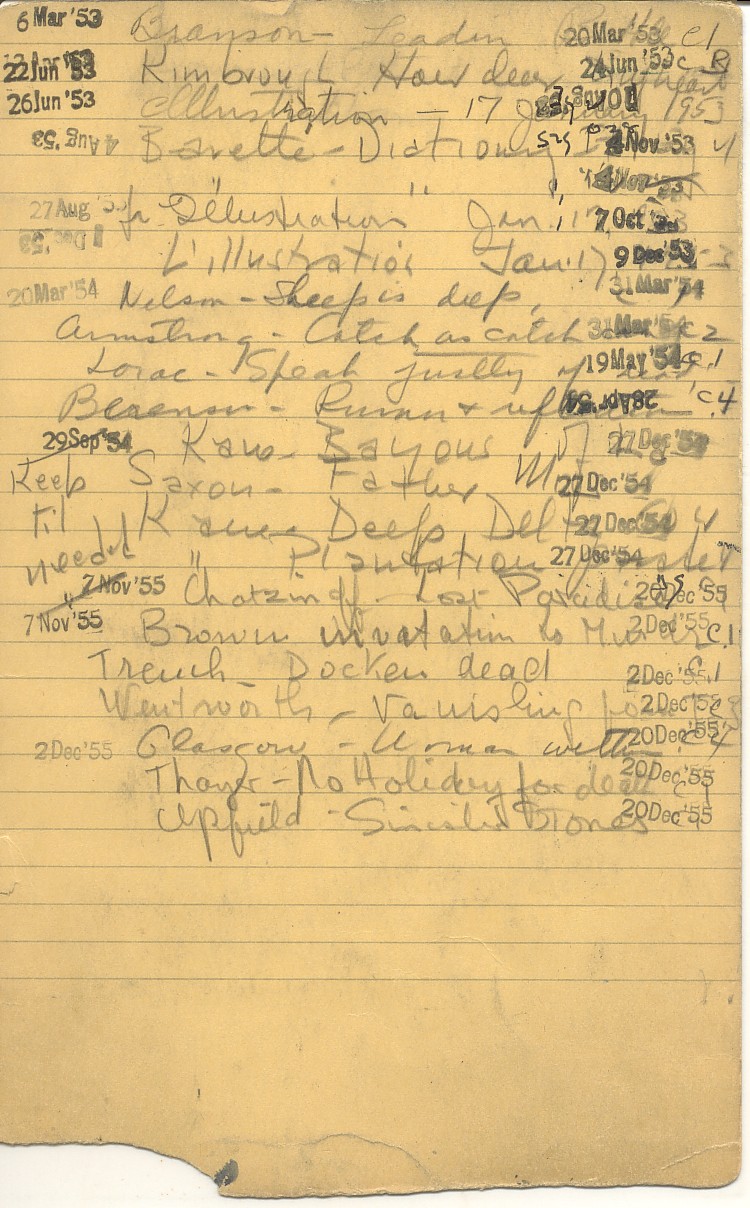 6 Mar '53 Branson - Leadin 20 Mar '53 C1
22 Jun '53 Kimbrough How dear 24 Jun '53 C
26 Jun '53 Illustration - 17 January 1953
4 Aug '53 Barette - Dictionary 4 Nov '53
14 Nov '53
27 Aug "Illustration" Jan. 17 7 Oct '53
1 Dec '53 L'illustration Jan. 17 9 Dec '53
20 Mar '54 Nelson - Sheep is deep, 31 Mar '54
Armstrong - Catch as catch 31 Mar '54 C2
Lorac - Speak justly of 19 May '54 C.1
Berenson - Rumor + 28 Apr '54 C.4
29 Sep '54 Kane - Bayous 27 Dec '54
Keep Saxon - Father 27 Dec '54
til Kane - Deep Delta 27 Dec '54
needed " Plantation 27 Dec '54
7 Nov '55 Chatzinoff - Lost Paradise 20 Dec '55
7 Nov '55 Brown invitation to 2 Dec '55 C.1
Trench - Docken dead 2 Dec '55 C.1
Wentworth - Vanishing 2 Dec '55
2 Dec '55 Glasgow - Woman within 20 Dec '55
Thayer - No Holiday for death 20 Dec '55
Upfield - Sinister Stones 20 Dec '55